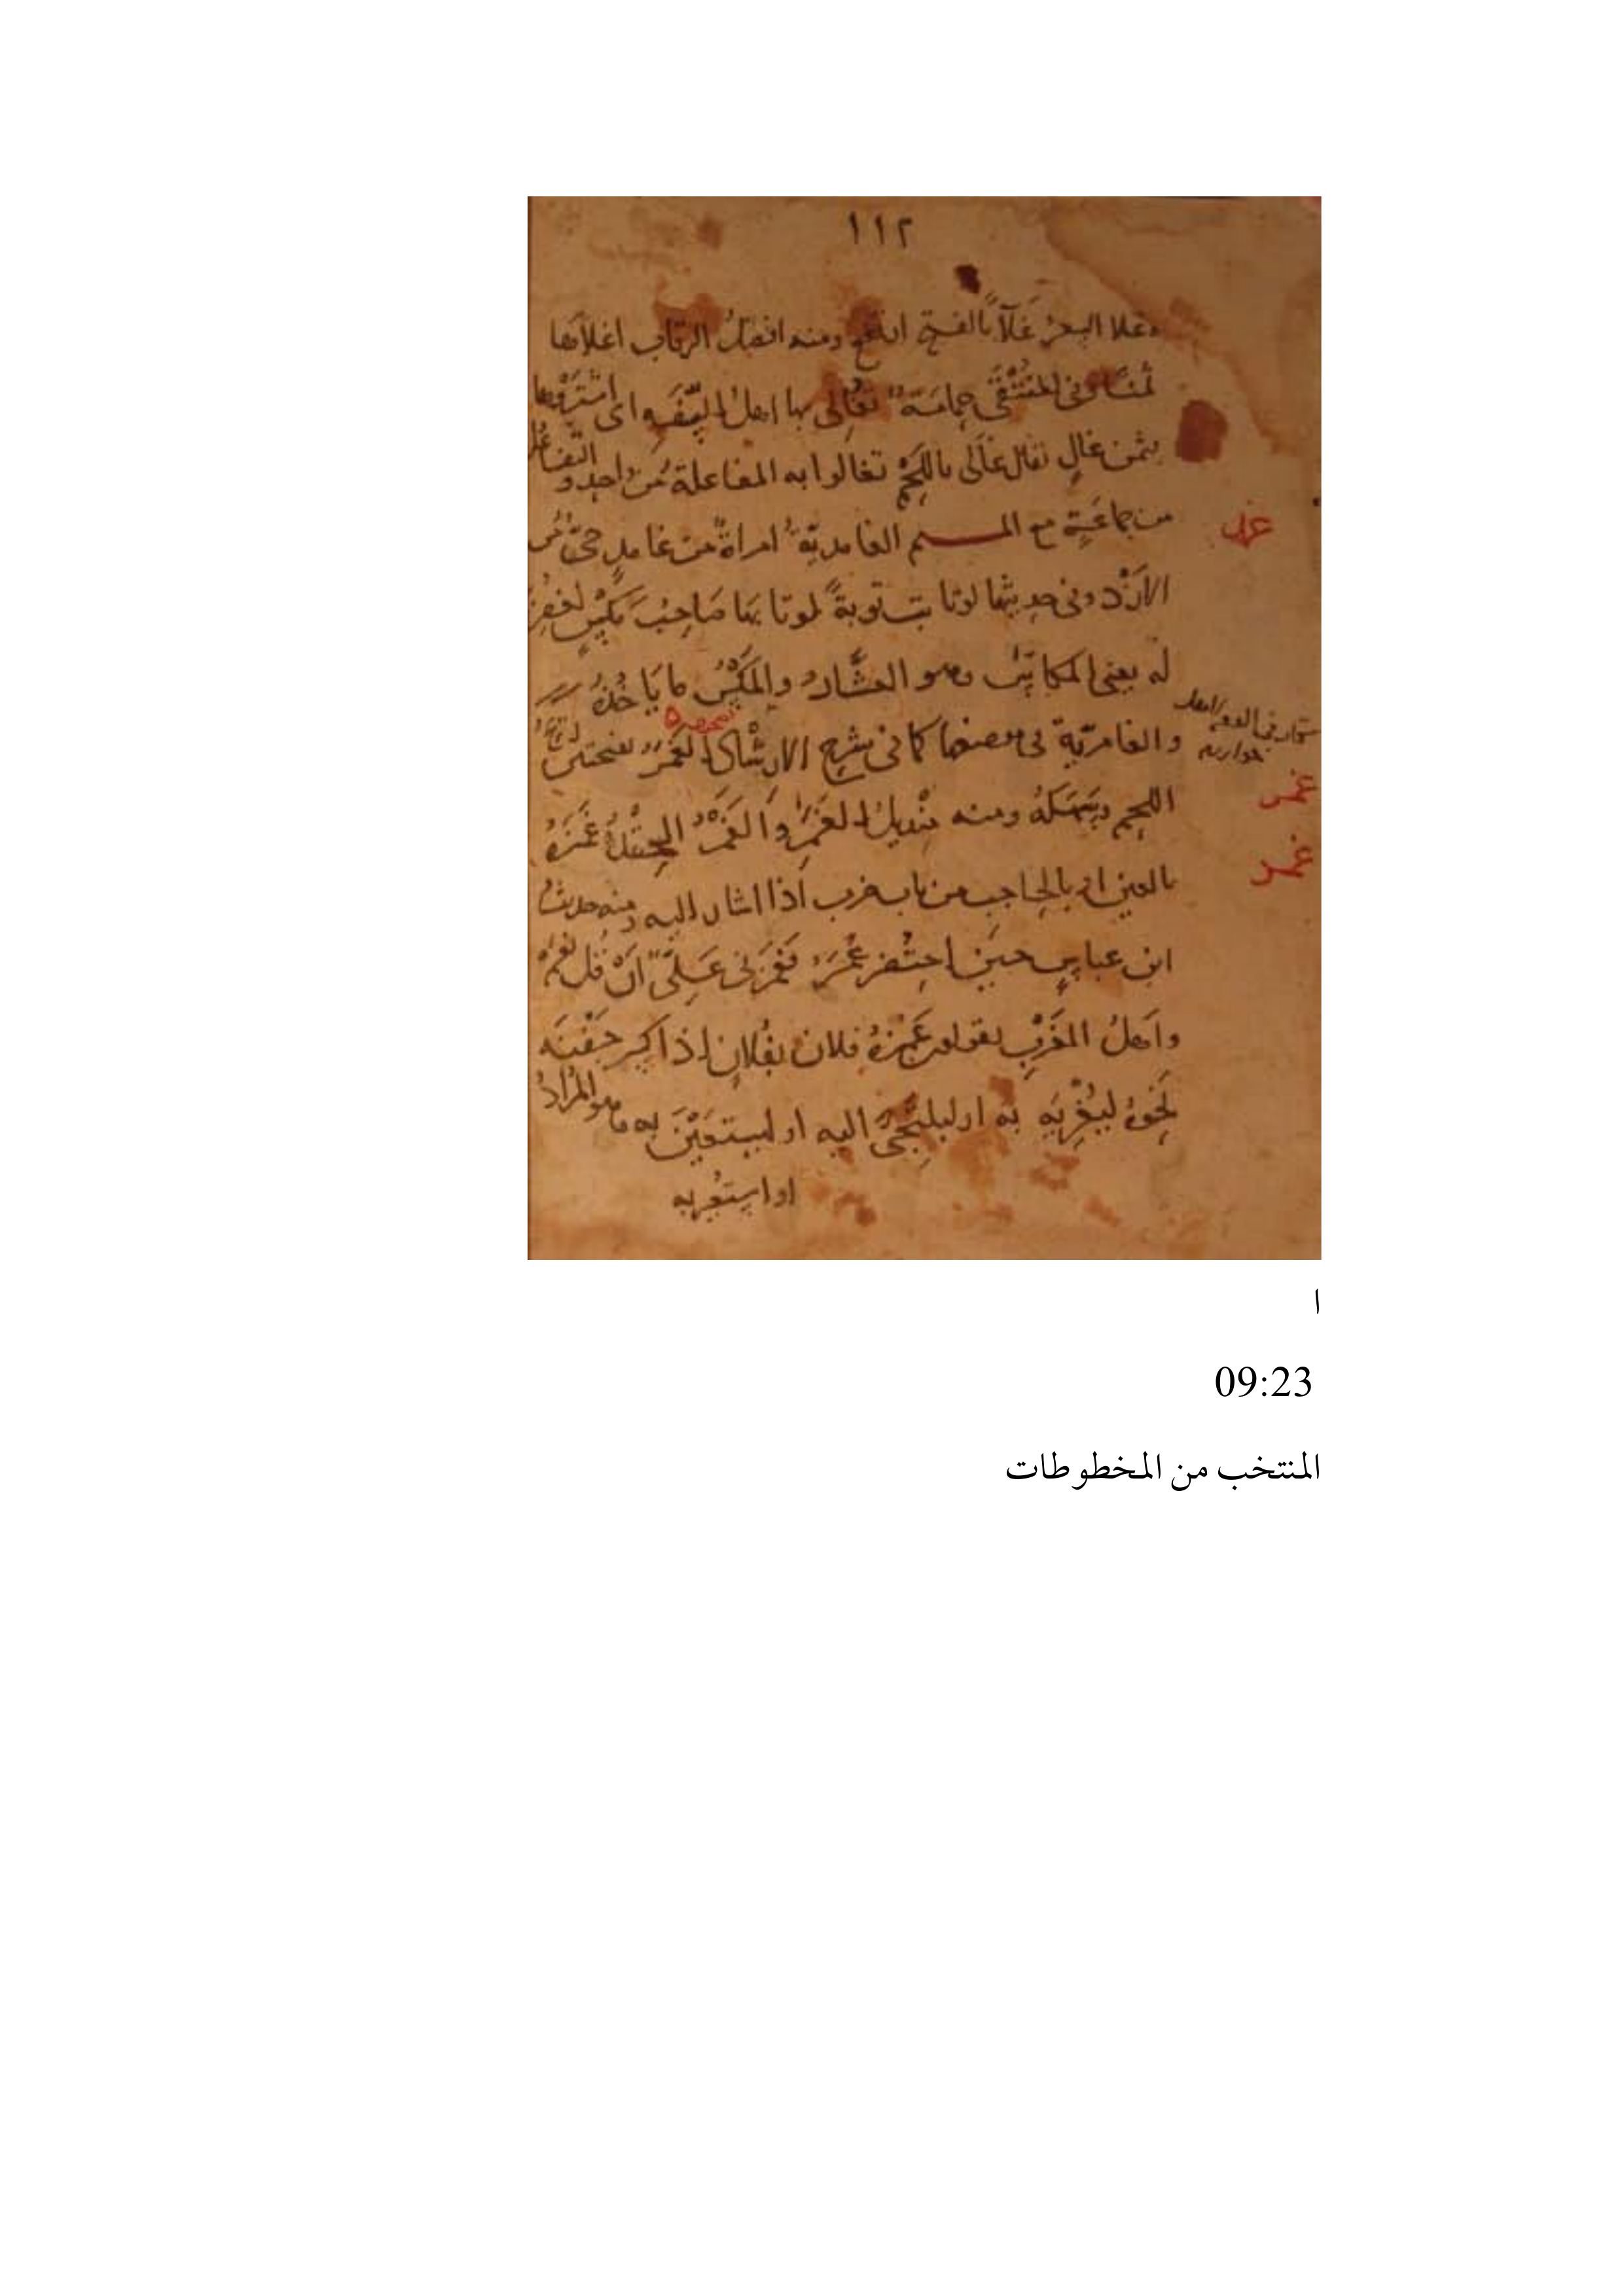 ١١٢
وغلا السعرُ غَلآءً بالفتح ارتفع ومنه افضلُ الرقاب اغلاَها
ثمنًا وفى المُنْتَقَى حِمَامَةٌ تَغَالى بها اهلُ السَّفَه اى اشْتَرَوْها
بثمن غالٍ يقال غَالَى باللَحْم تغالوا به المفاعلة مِن واحدٍ والتفاعُل
من جماعَةٍ مع الميم الغامديّةُ امراةٌ من غامدٍ حىٌّ مِن
غم‍د
الازْد وفى حديثها لو تابت توبةً لو تابها صَاحِبُ مَكْسٍ لغُفِرَ
له يعنى المكاسَ وهو العشَّارُ والمَكْسُ ما يَاخُذُهُ
والغامريّة فى موضعها كما فى شرح الارشاد الغَمَرُ بفتحتين ريحُ
غمر
اللحم وسَهَكُهُ ومنه مِنْدِيلُ الغَمَرِ وَالغِمْرُ الحِقْدُ غَمَزَهُ
غمز
بالعين او بالحاجب من باب ضرب اذا اشار اليه ومنه حديثُ
ابن عباسٍ حينَ احتُضر عُمَرُ فغمزنى عَلِىٌّ اَنْ قُل نعَمْ
واَهلُ المَغْرِب يقولون غَمَزَهُ فلان بفُلانٍ اِذا كسر جَفْنَه
نَحْوهُ ليُغْرِيَه به او ليلتَجِئَ اليه او ليستعِيْنَ به وهو المُرادُ
ا
09:23
المنتخب من المخطوطات